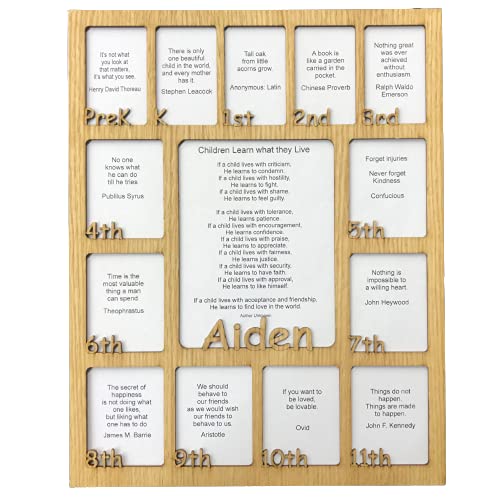 It's not what
you look at
that matters,
it's what you see.
Henry David Thoreau
PreK
There is only
one beautiful
child in the world,
and every mother
has it.
Stephen Leacock
K
Tall oak
from little
acorns grow.
Anonymous: Latin
1st
A book is
like a garden
carried in the
pocket.
Chinese Proverb
2nd
Nothing great
was ever
achieved
without
enthusiasm.
Ralph Waldo
Emerson
3rd
No one
knows what
he can do
till he tries
Publilius Syrus
4th
Children Learn what they Live
If a child lives with criticism,
He learns to condemn.
If a child lives with hostility,
He learns to fight.
If a child lives with shame,
He learns to feel guilty.
If a child lives with tolerance,
He learns patience.
If a child lives with encouragement,
He learns confidence.
If a child lives with praise,
He learns to appreciate.
If a child lives with fairness,
He learns justice.
If a child lives with security,
He learns to have faith.
If a child lives with approval,
He learns to like himself.
If a child lives with acceptance and friendship,
He learns to find love in the world.
Author Unknown
Aiden
Forget injuries
Never forget
Kindness
Confucious
5th
Time is the
most valuable
thing a man
can spend
Theophrastus
6th
Nothing is
impossible to
a willing heart.
John Heywood
7th
The secret of
happiness
is not doing what
one likes,
but liking what
one has to do
James M. Barrie
8th
We should
behave to
our friends
as we would wish
our friends to
behave to us.
Aristotle
9th
If you want to
be loved,
be lovable.
Ovid
10th
Things do not
happen.
Things are made
to happen.
John F. Kennedy
11th